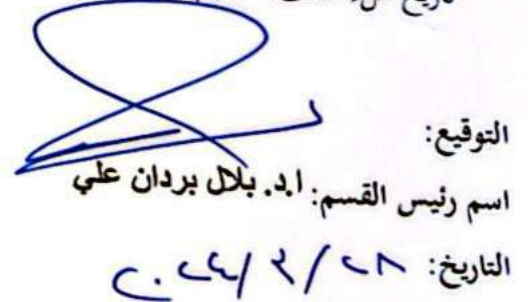 التوقيع:
اسم رئيس القسم: ا.د. بلال بردان علي
التاريخ: ٢٨/٣/٢٠٢٤